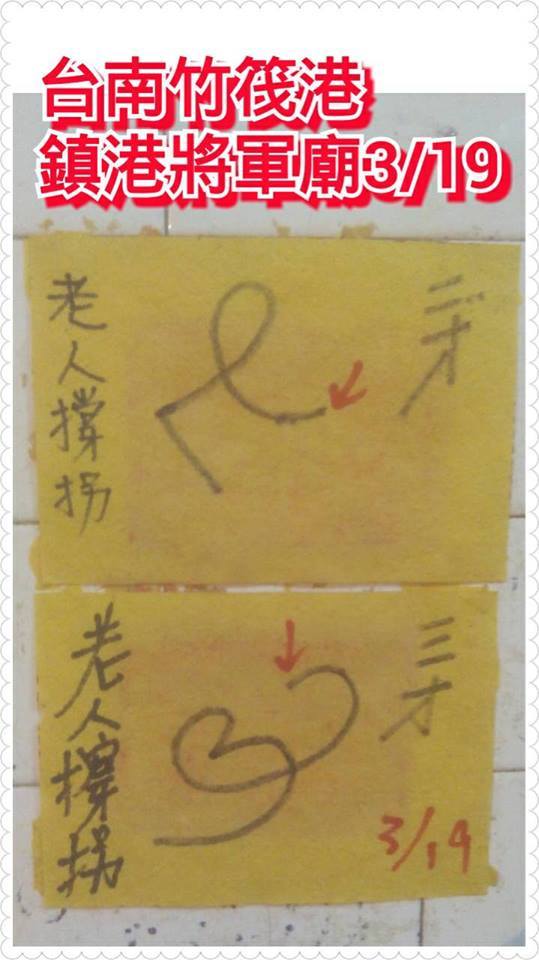 台南竹筏港
鎮港將軍廟3/19
老人撐拐
二才
老人撐拐
三才
3/19